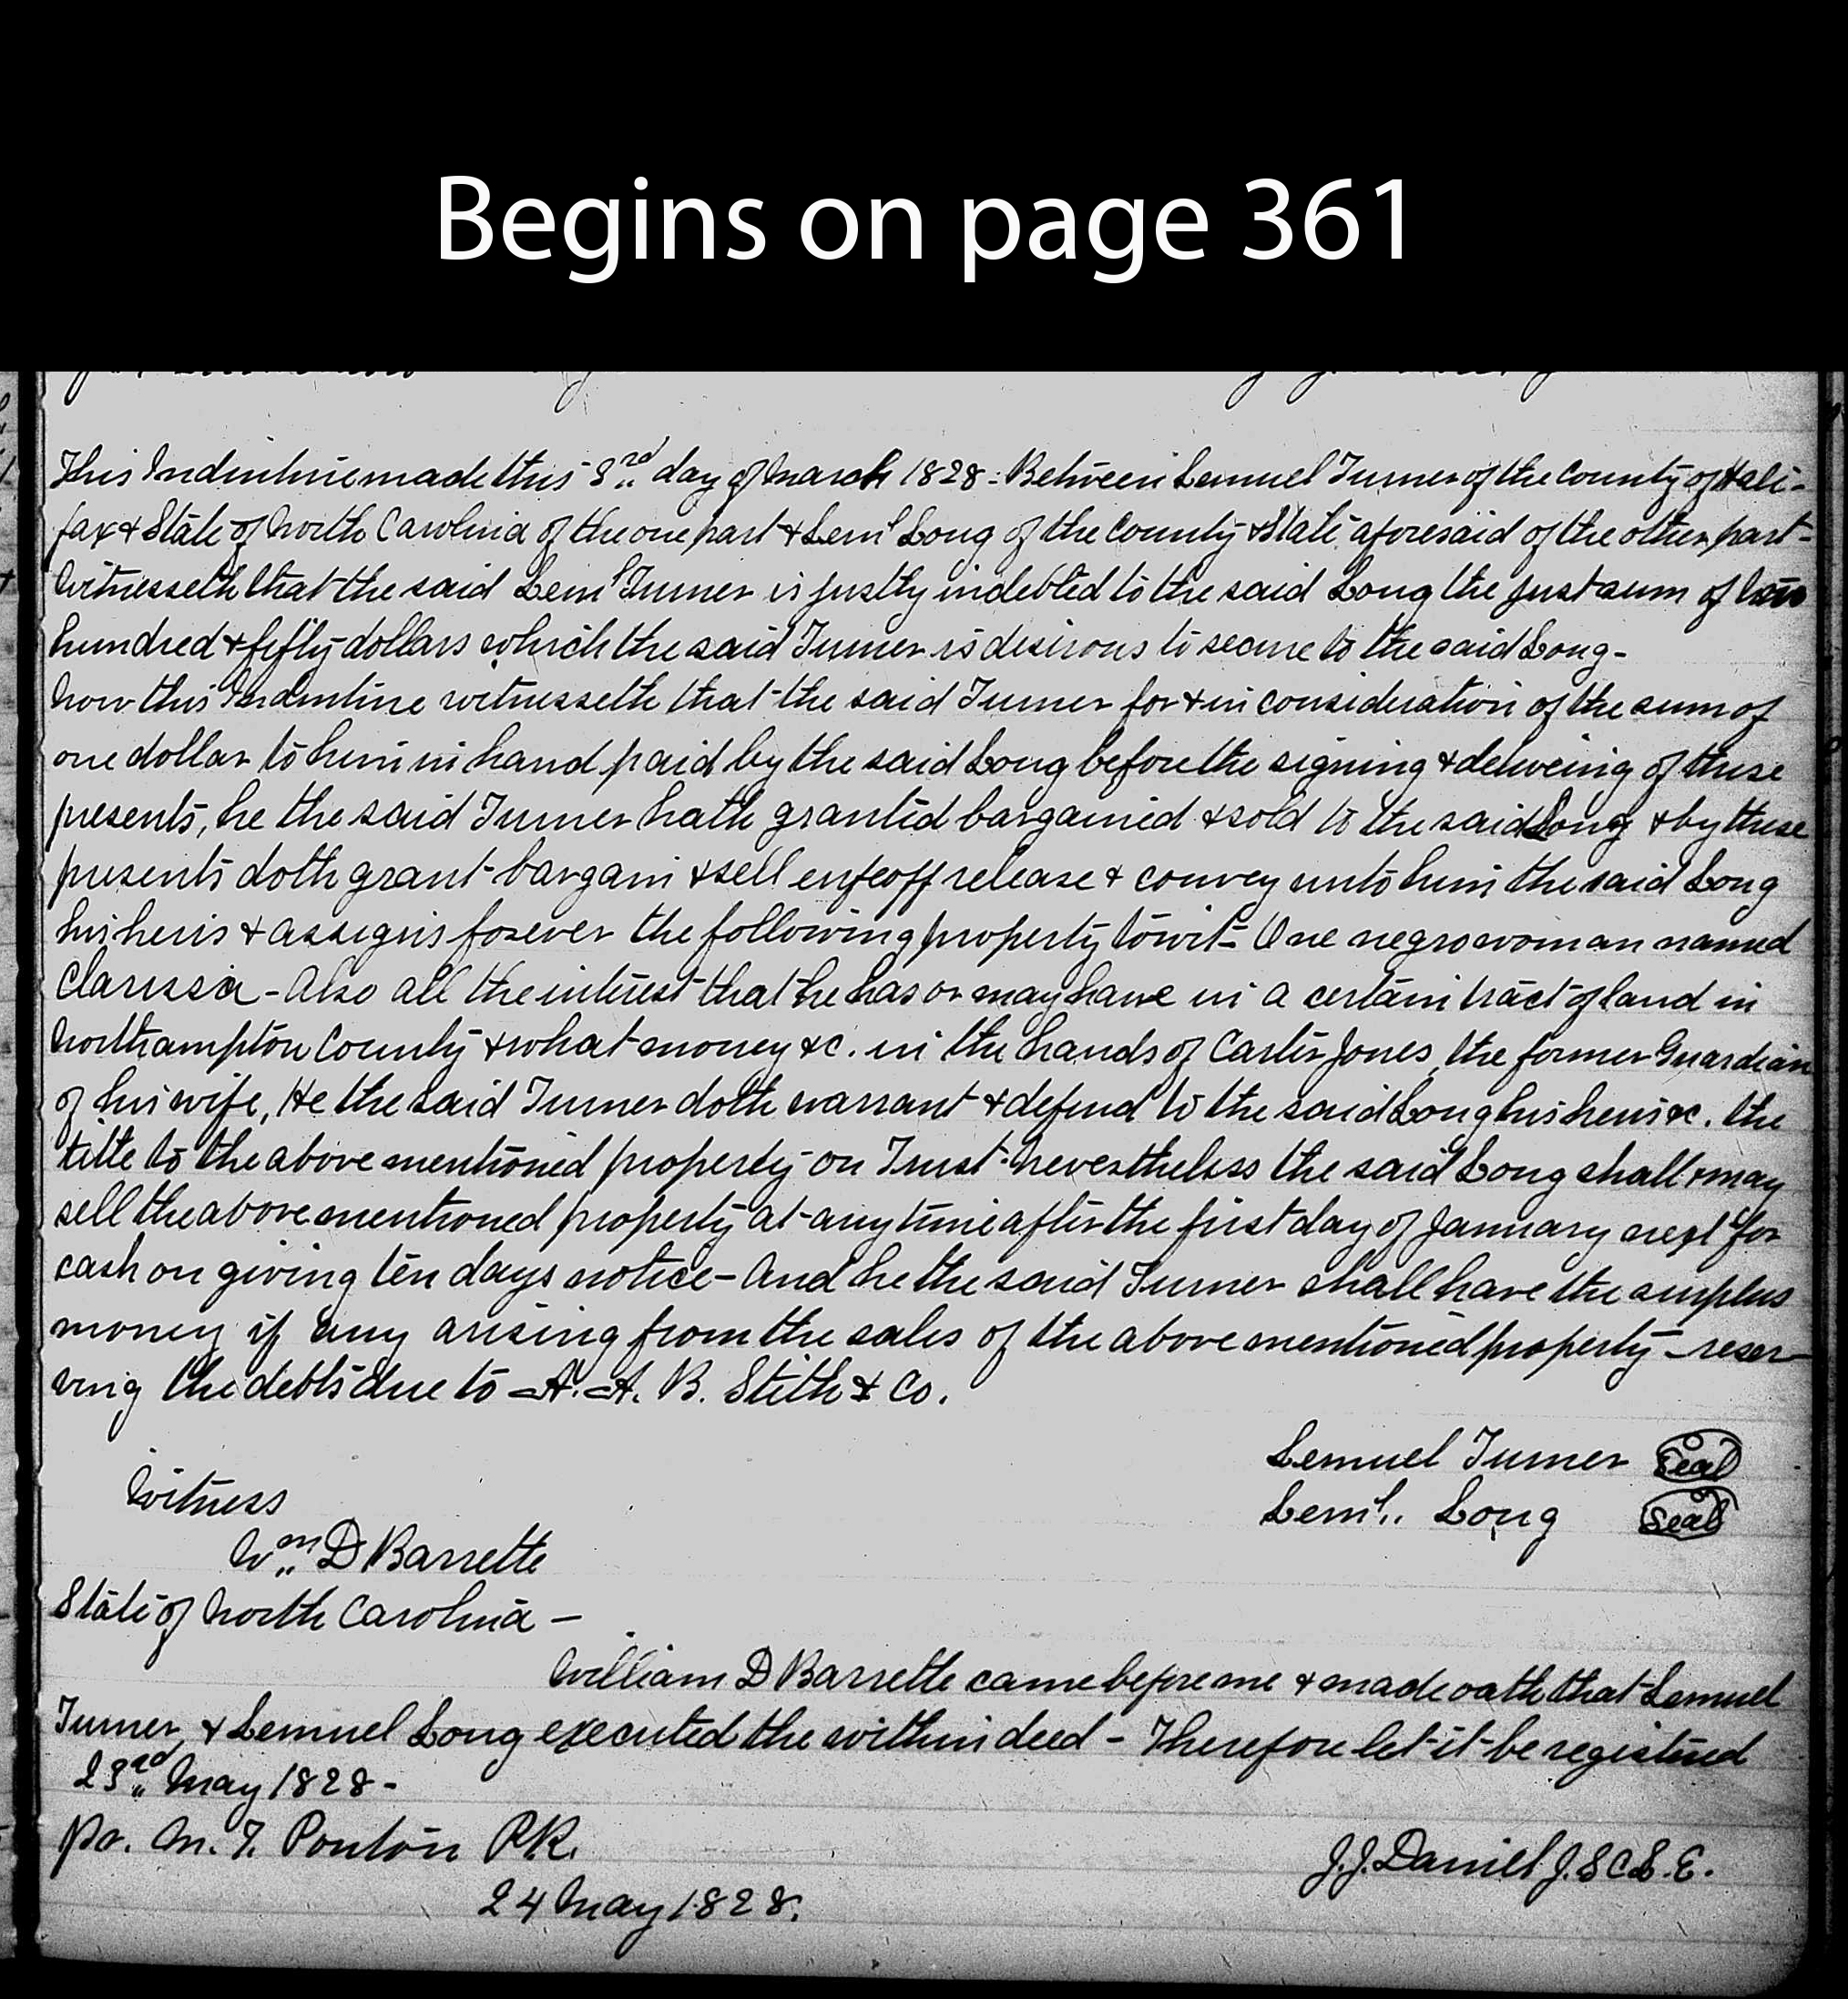 Begins on page 361
This Indenture made this 3rd day of March 1828. Between Lemuel Turner of the County of Hali-
fax & State of North Carolina of the one part & Leml Long of the County & State aforesaid of the other part-
Witnesseth that the said Leml Turner is justly indebted to the said Long the just sum of two
hundred & fifty dollars which the said Turner is desirous to secure to the said Long-
Now this Indenture witnesseth that the said Turner for & in consideration of the sum of
one dollar to him in hand paid by the said Long before the signing & delivering of these
presents, he the said Turner hath granted bargained & sold to the said Long & by these
presents doth grant bargain & sell enfeoff release & convey unto him the said Long
his heirs & assigns forever the following property towit- One negro woman named
Clarissa - Also all the interest that he has or may have in a certain tract of land in
Northampton County & what money &c. in the hands of Carter Jones, the former Guardian
of his wife, He the said Turner doth warrant & defend to the said Long his heirs &c. the
title to the above mentioned property - on Trust - Nevertheless the said Long shall & may
sell the above mentioned property at any time after the first day of January next for
cash on giving ten days notice - And he the said Turner shall have the surplus
money if any arising from the sales of the above mentioned property - reser-
ving the debts due to A. A. B. Stith & Co.
Lemuel Turner Seal
Leml.. Long Seal
Witness
Wm D Barrette
State of North Carolina -
William D Barrette came before me & made oath that Lemuel
Turner, & Lemuel Long executed the within deed - Therefore let it be registered
23rd May 1828-
pr. M. T. Ponton P.R.
J. J. Daniel J. S C L. E.
24 May 1828.